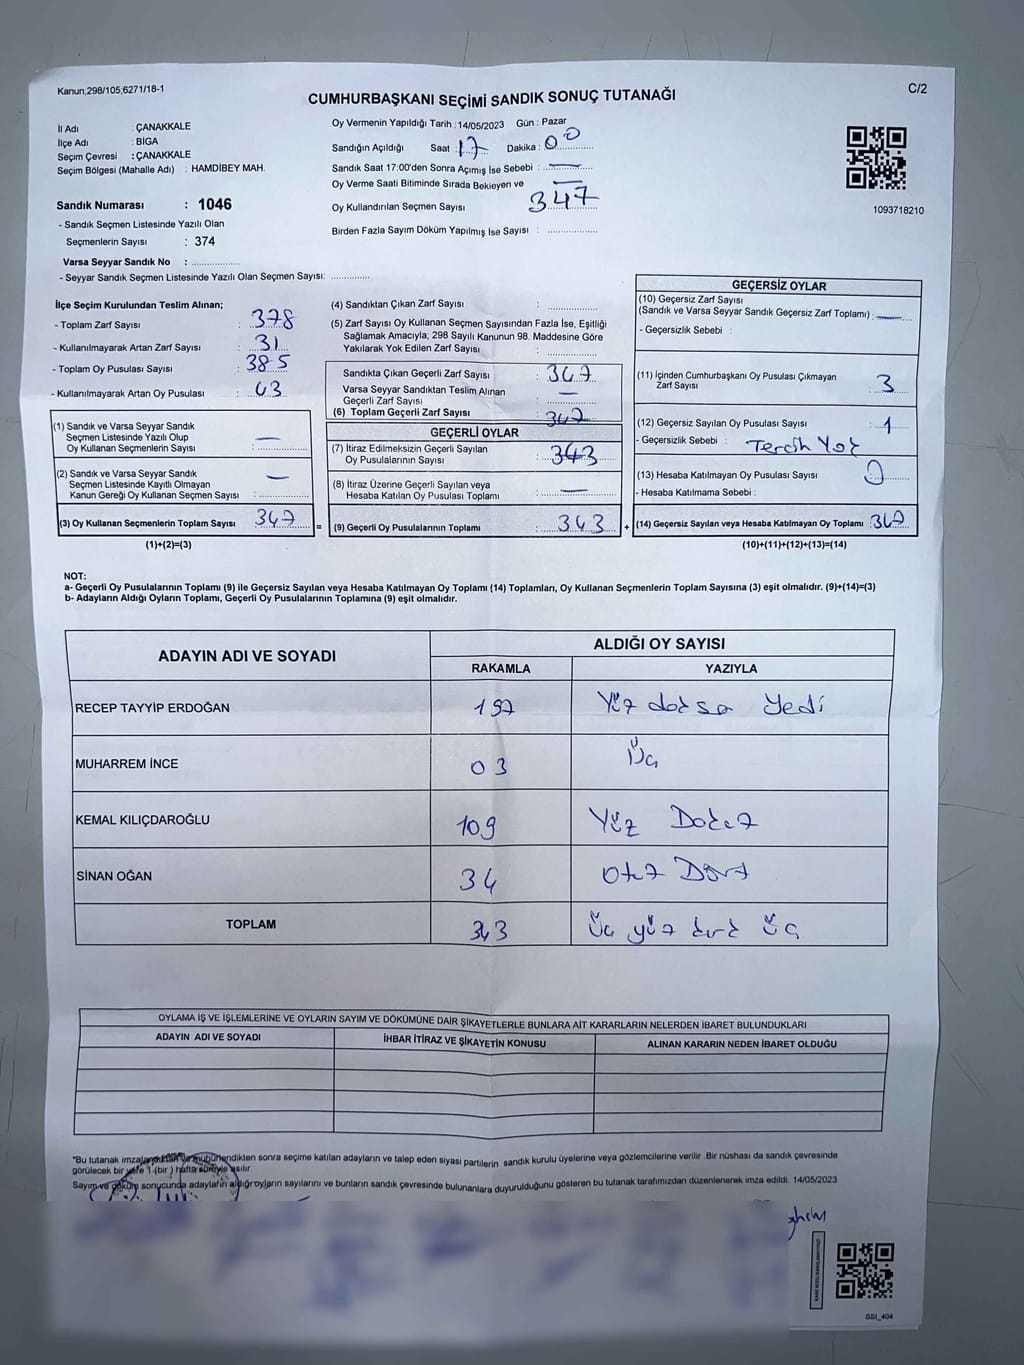 Kanun,298/105,6271/18-1
C/2
CUMHURBAŞKANI SEÇİMİ SANDIK SONUÇ TUTANAĞI
İl Adı : ÇANAKKALE
İlçe Adı : BİGA
Seçim Çevresi : ÇANAKKALE
Seçim Bölgesi (Mahalle Adı) : HAMDİBEY MAH.
Sandık Numarası : 1046
- Sandık Seçmen Listesinde Yazılı Olan
Seçmenlerin Sayısı : 374
Varsa Seyyar Sandık No :
- Seyyar Sandık Seçmen Listesinde Yazılı Olan Seçmen Sayısı:
Oy Vermenin Yapıldığı Tarih : 14/05/2023 Gün : Pazar
Sandığın Açıldığı Saat : 17 Dakika : 00
Sandık Saat 17:00'den Sonra Açımış İse Sebebi : —
Oy Verme Saati Bitiminde Sırada Bekleyen ve —
Oy Kullandırılan Seçmen Sayısı 347
Birden Fazla Sayım Döküm Yapılmış İse Sayısı :
1093718210
İlçe Seçim Kurulundan Teslim Alınan;
- Toplam Zarf Sayısı : 378
- Kullanılmayarak Artan Zarf Sayısı : 31
- Toplam Oy Pusulası Sayısı : 385
- Kullanılmayarak Artan Oy Pusulası : 43
(1) Sandık ve Varsa Seyyar Sandık
Seçmen Listesinde Yazılı Olup
Oy Kullanan Seçmenlerin Sayısı : —
(2) Sandık ve Varsa Seyyar Sandık
Seçmen Listesinde Kayıtlı Olmayan
Kanun Gereği Oy Kullanan Seçmen Sayısı : —
(3) Oy Kullanan Seçmenlerin Toplam Sayısı 347
(1)+(2)=(3)
(4) Sandıktan Çıkan Zarf Sayısı :
(5) Zarf Sayısı Oy Kullanan Seçmen Sayısından Fazla İse, Eşitliği
Sağlamak Amacıyla; 298 Sayılı Kanunun 98. Maddesine Göre
Yakılarak Yok Edilen Zarf Sayısı :
Sandıkta Çıkan Geçerli Zarf Sayısı : 347
Varsa Seyyar Sandıktan Teslim Alınan
Geçerli Zarf Sayısı : —
(6) Toplam Geçerli Zarf Sayısı : 347
GEÇERLİ OYLAR
(7) İtiraz Edilmeksizin Geçerli Sayılan
Oy Pusulalarının Sayısı : 343
(8) İtiraz Üzerine Geçerli Sayılan veya
Hesaba Katılan Oy Pusulası Toplamı : —
= (9) Geçerli Oy Pusulalarının Toplamı : 343 +
GEÇERSİZ OYLAR
(10) Geçersiz Zarf Sayısı
(Sandık ve Varsa Seyyar Sandık Geçersiz Zarf Toplamı) : —
- Geçersizlik Sebebi :
(11) İçinden Cumhurbaşkanı Oy Pusulası Çıkmayan
Zarf Sayısı : 3
(12) Geçersiz Sayılan Oy Pusulası Sayısı : 1
- Geçersizlik Sebebi : Tercih Yok
(13) Hesaba Katılmayan Oy Pusulası Sayısı : 0
- Hesaba Katılmama Sebebi :
(14) Geçersiz Sayılan veya Hesaba Katılmayan Oy Toplamı : 347
(10)+(11)+(12)+(13)=(14)
NOT:
a- Geçerli Oy Pusulalarının Toplamı (9) ile Geçersiz Sayılan veya Hesaba Katılmayan Oy Toplamı (14) Toplamları, Oy Kullanan Seçmenlerin Toplam Sayısına (3) eşit olmalıdır. (9)+(14)=(3)
b- Adayların Aldığı Oyların Toplamı, Geçerli Oy Pusulalarının Toplamına (9) eşit olmalıdır.
ADAYIN ADI VE SOYADI
ALDIĞI OY SAYISI
RAKAMLA YAZIYLA
RECEP TAYYİP ERDOĞAN 197 Yüz doksan Yedi
MUHARREM İNCE 03 Üç
KEMAL KILIÇDAROĞLU 109 Yüz Dokuz
SİNAN OĞAN 34 Otuz Dört
TOPLAM 343 Üç yüz kırk üç
OYLAMA İŞ VE İŞLEMLERİNE VE OYLARIN SAYIM VE DÖKÜMÜNE DAİR ŞİKAYETLERLE BUNLARA AİT KARARLARIN NELERDEN İBARET BULUNDUKLARI
ADAYIN ADI VE SOYADI İHBAR İTİRAZ VE ŞİKAYETİN KONUSU ALINAN KARARIN NEDEN İBARET OLDUĞU
*Bu tutanak imzalandıktan ve mühürlendikten sonra seçime katılan adayların ve talep eden siyasi partilerin sandık kurulu üyelerine veya gözlemcilerine verilir .Bir nüshası da sandık çevresinde
görülecek bir yere 1 (bir ) hafta süreyle asılır.
Sayım ve döküm sonucunda adayların aldığı oyların sayılarını ve bunların sandık çevresinde bulunanlara duyurulduğunu gösteren bu tutanak tarafımızdan düzenlenerek imza edildi. 14/05/2023
SSI_404